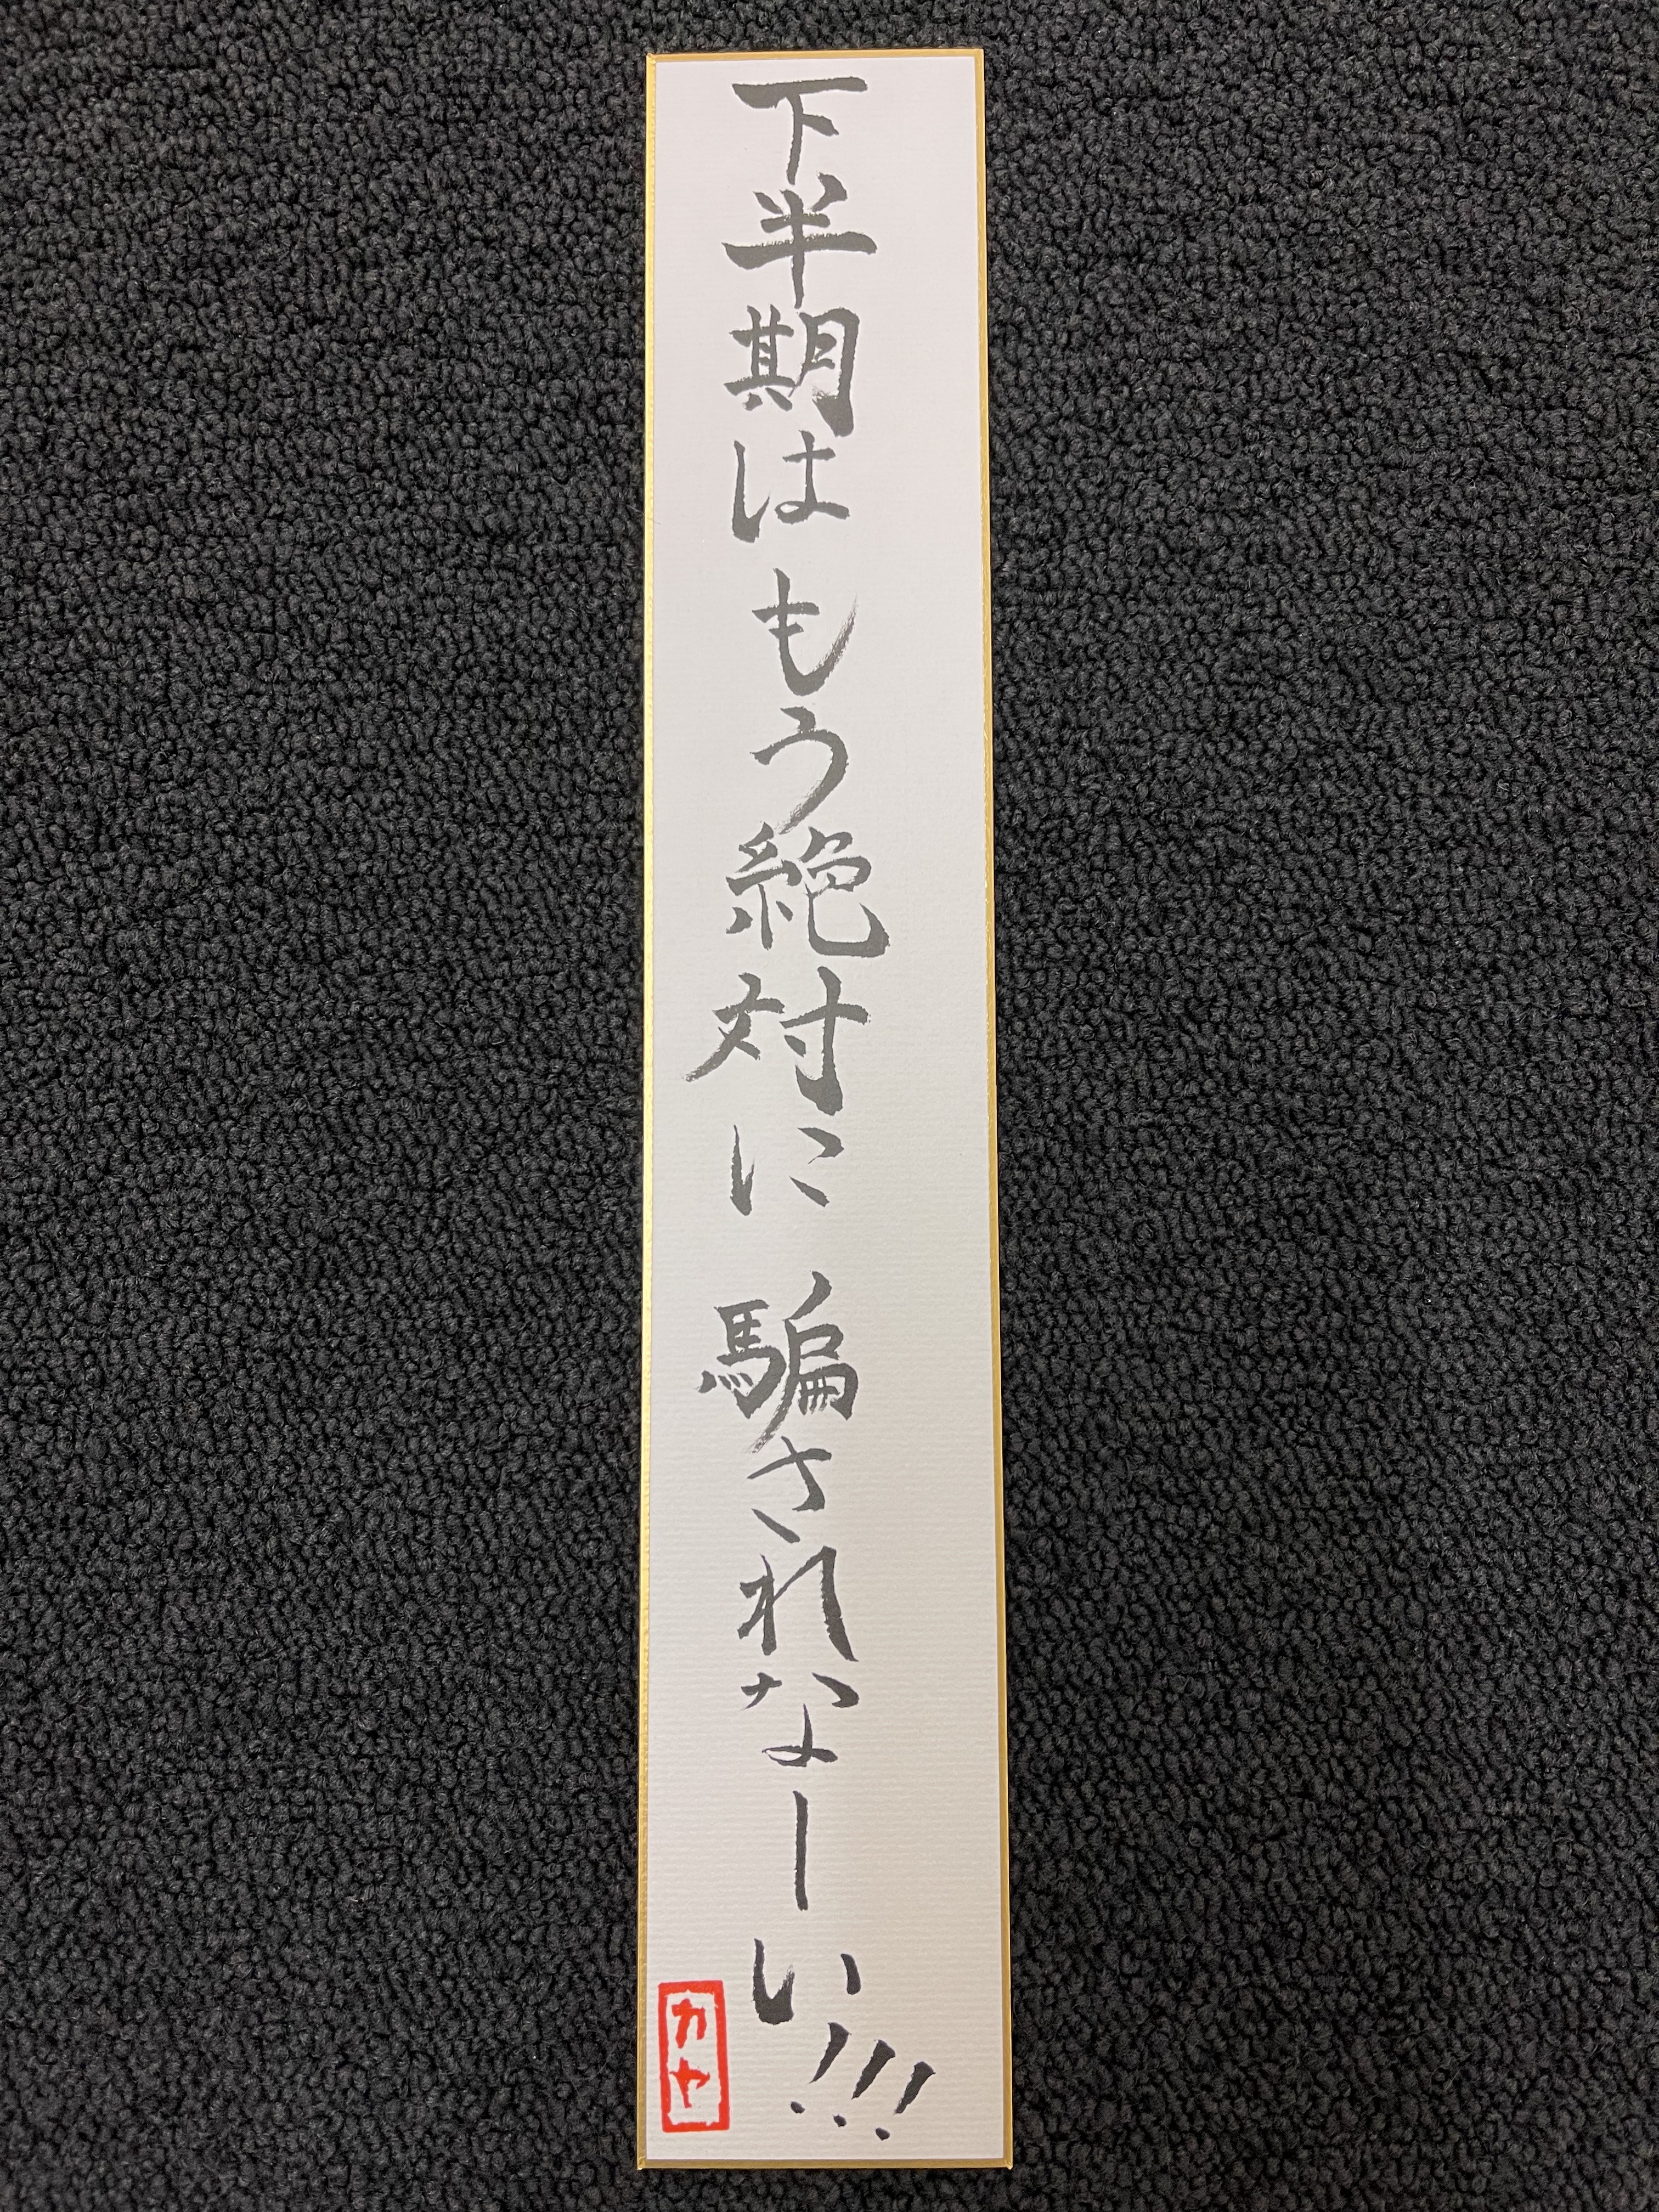 下半期はもう絶対に騙されなーい!!!
カヤ